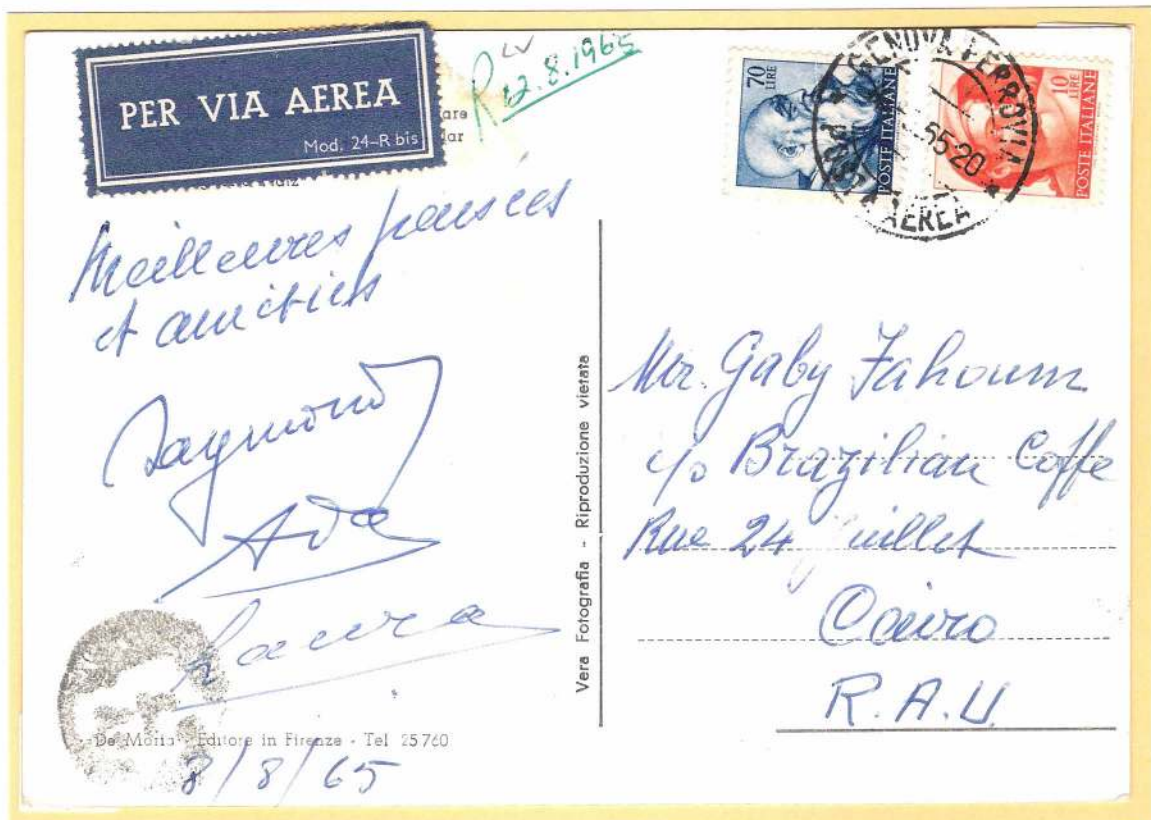 PER VIA AEREA
Mod. 24-R bis
R 12.8.1965
are
ar
70 LIRE
POSTE ITALIANE
10 LIRE
POSTE ITALIANE
GENOVA FERROVIA
65-20
POSTA AEREA
Meilleures pensées
et amitiés
Raymond
Ada
Laura
De Moria - Editore in Firenze - Tel 25760
8/8/65
Vera Fotografia - Riproduzione vietata
Mr. Gaby Fahoum
c/o Brazilian Coffe
Rue 24 Juillet
Cairo
R.A.U.